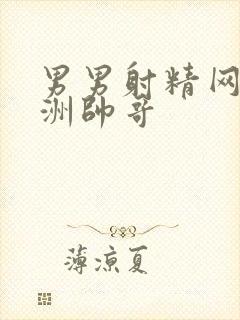 男男射精网
洲帅哥
薄凉夏